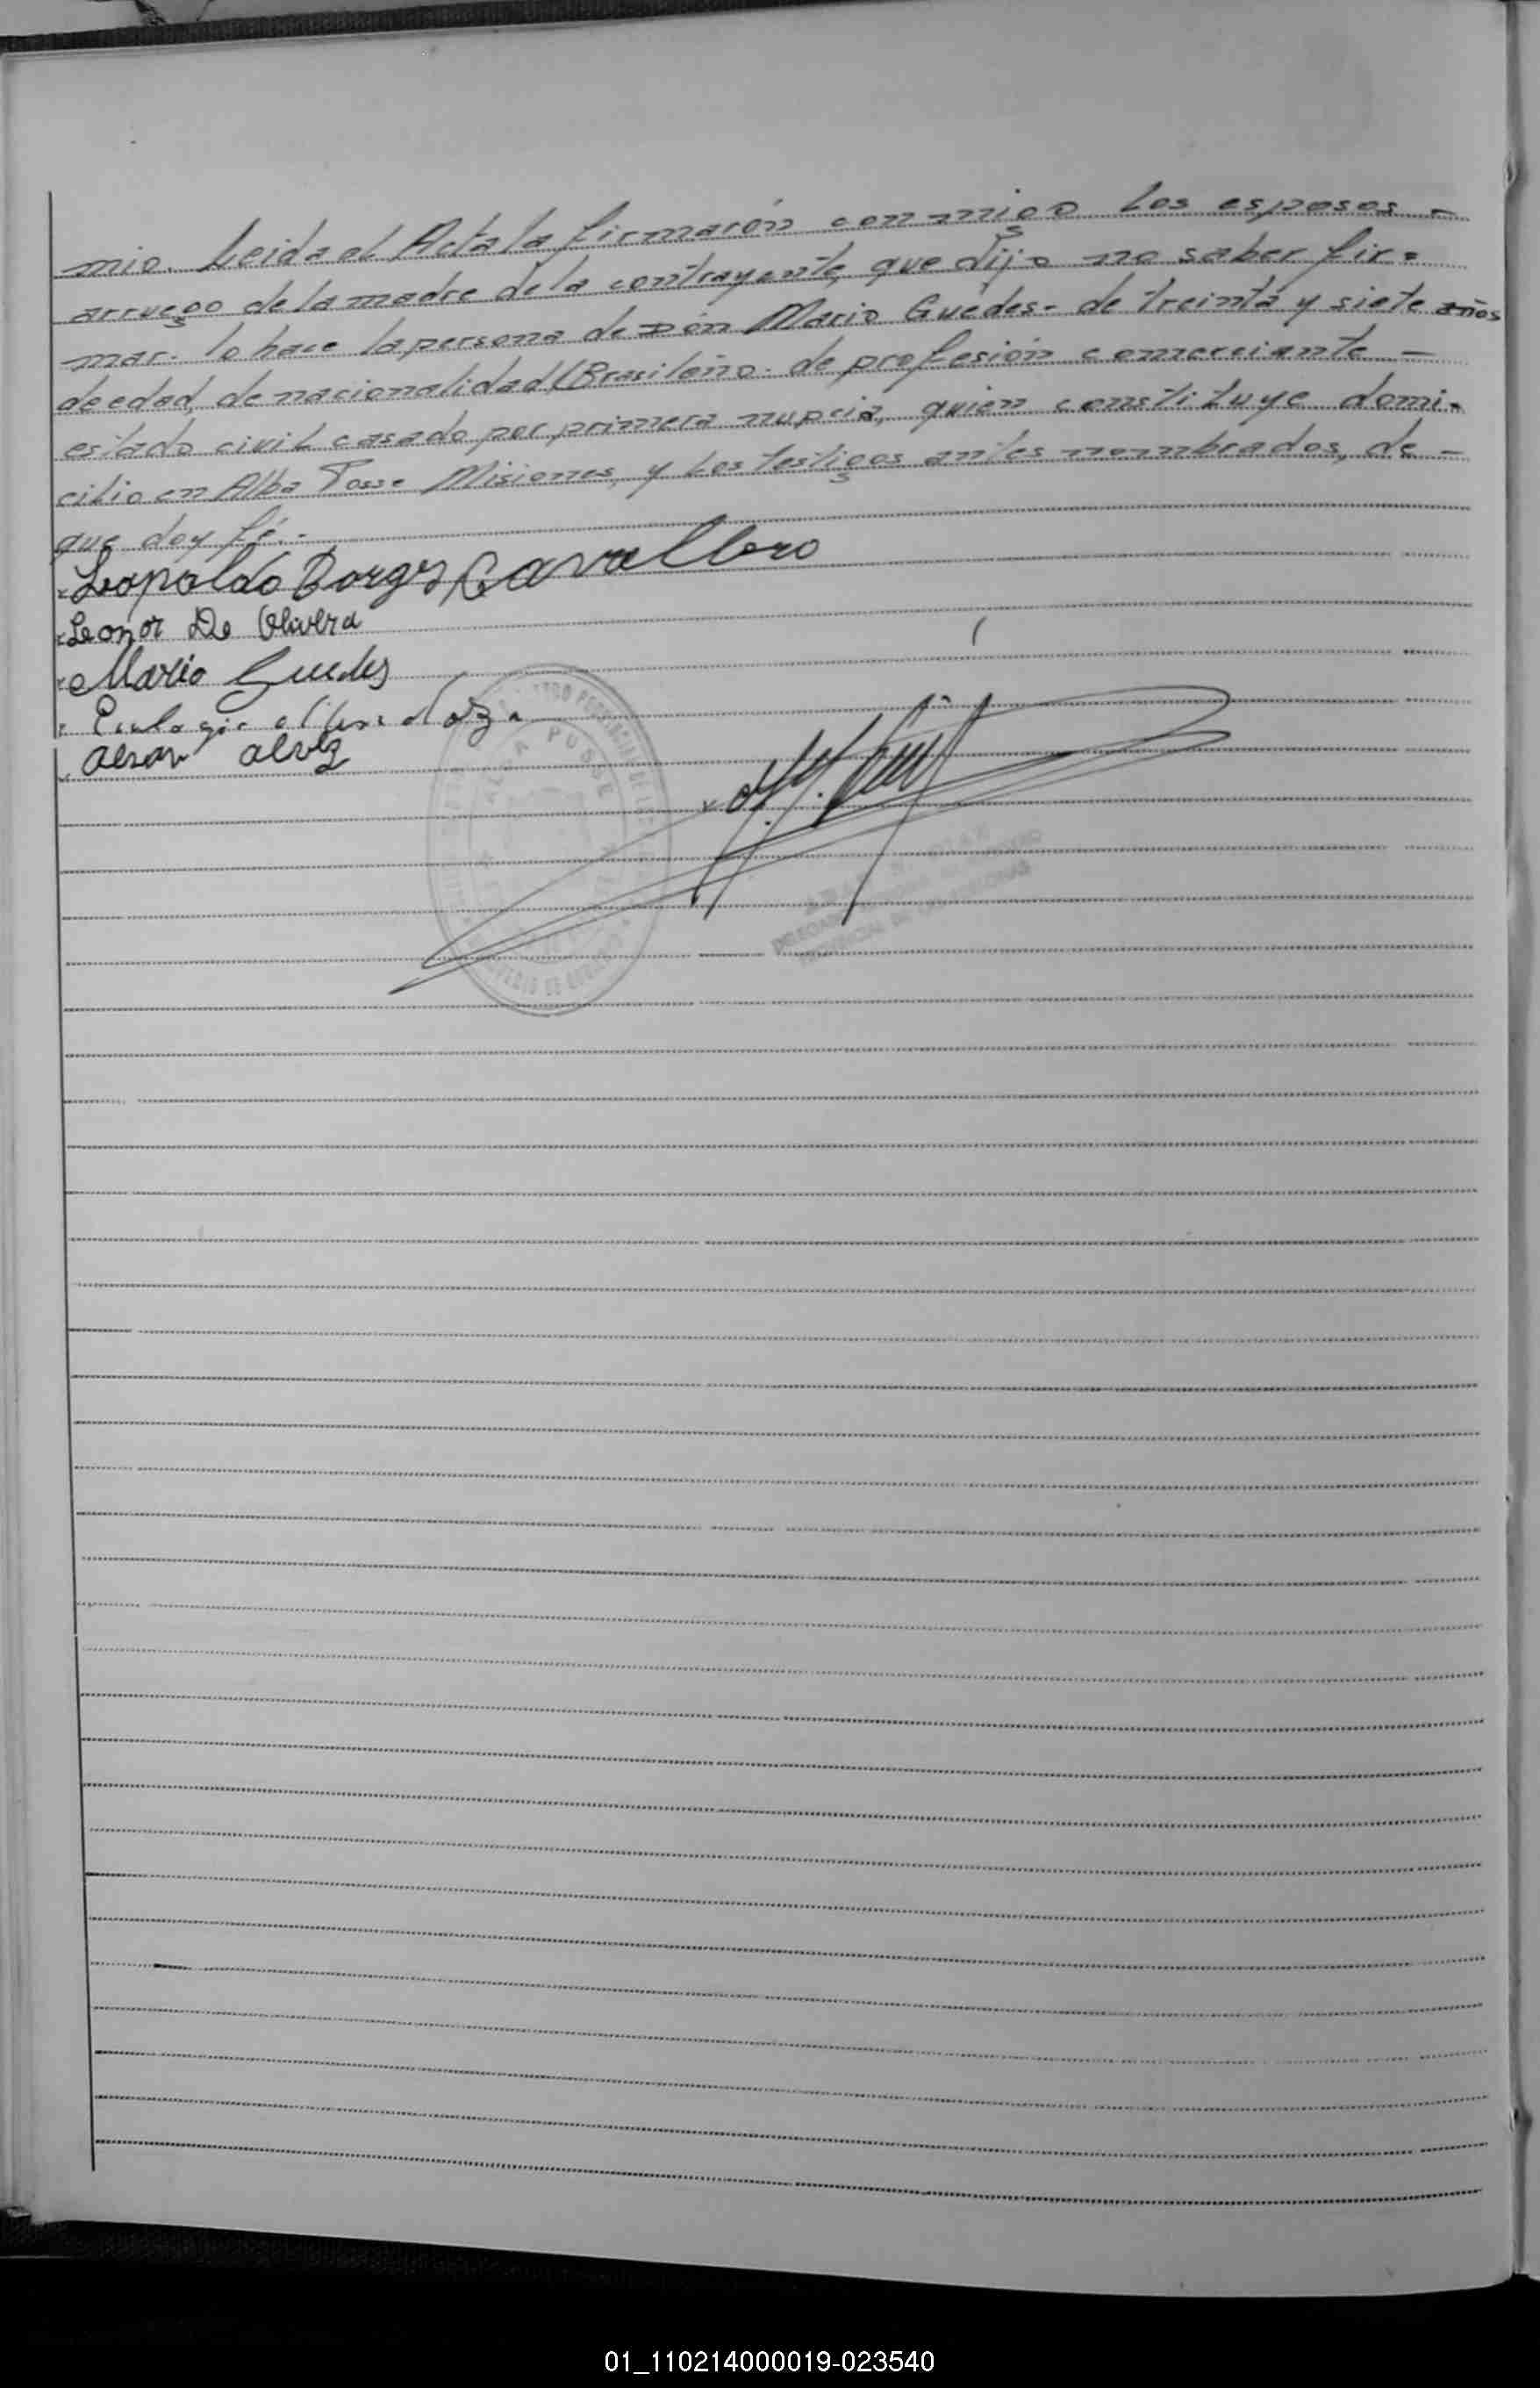 mio. Leida el Acta la firmarón conmigo los esposos -
arruego de la madre de la contrayente, que dijo no saber fir=
mar. lo hace la persona de Dón Mario Guédes- de treinta y siete años
de edad, de nacionalidad Brasileño. de profesión comerciante -
estado civil casado por primera nupcia, quién constituye domi-
cilio en Alba Posse Misiones, y los testigos antes nombrados, de -
que doy fé.-
Leopoldo Borges Cavallero
Leonor De Olivera
Mario Guedes
Eulogio
alves
ALBA POSSE
01_110214000019-023540